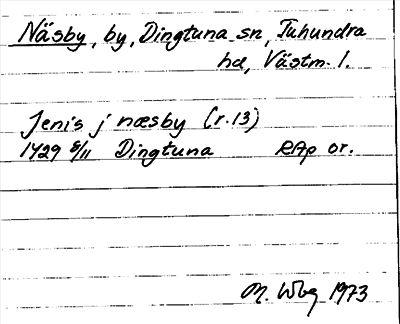 Näsby, by, Dingtuna sn, Tuhundra
hd, Västm. l.
Jenis j næsby (r.13)
1429 8/11 Dingtuna RAp or.
M. Wbg 1973